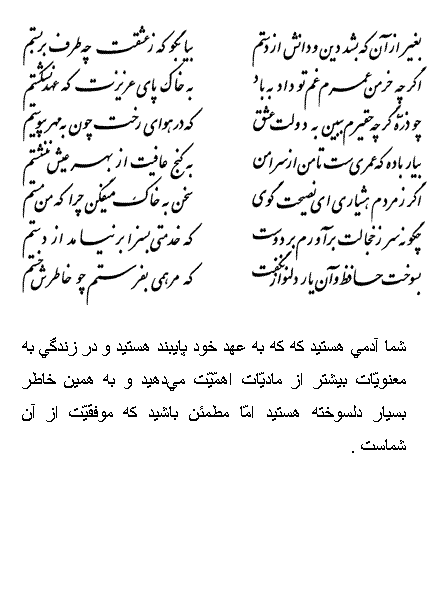 بغیر از آن که بشد دین و دانش از دستم بیا بگو که ز عشقت چه طرف بربستم
اگر چه خرمن عمرم غم تو داد به باد به خاک پای عزیزت که عهد نشکستم
چو ذره گرچه حقیرم ببین به دولت عشق که در هوای رخت چون به مهر پیوستم
بیار باده که عمری‌ست تا من از سر امن به کنج عافیت از بهر عیش ننشستم
اگر ز مردم هشیاری ای نصیحت گوی سخن به خاک میفکن چرا که من مستم
چگونه سر ز خجالت برآورم بر دوست که خدمتی بسزا برنیامد از دستم
بسوخت حافظ و آن یار دلنواز نگفت که مرهمی بفرستم چو خاطرش خستم
شما آدمي هستيد که که به عهد خود پايبند هستيد و در زندگي به
معنويّات بيشتر از ماديّات اهمّيّت مي‌دهيد و به همين خاطر
بسيار دلسوخته هستيد امّا مطمئن باشيد که موفقيّت از آن
شماست .